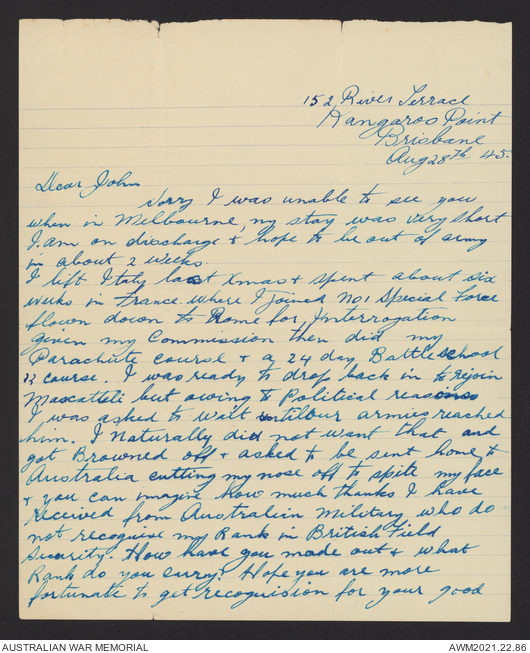 152 River Terrace
Kangaroo Point
Brisbane
Aug 28th 45.
Dear John
Sorry I was unable to see you
when in Melbourne, my stay was very short
I am on discharge & hope to be out of army
in about 2 weeks.
I lift Italy last Xmas & spent about six
weeks in France where I joined No 1 Special Force
flown down to Rome for Interrogation
given my Commission then did my
Parachute course & a 24 day Battle school
course. I was ready to drop back in to rejoin
but owing to Political reasons
I was asked to wait until our armies reached
him. I Naturally did not want that and
got Browned off & asked to be sent home to
Australia cutting my nose off to spite my face
& you can imagine how much thanks I have
received from Australian Military who do
not recognise my Rank in British Field
Security. How have you made out & what
Rank do you carry? Hope you are more
fortunate to get recoguision for your good
AUSTRALIAN WAR MEMORIAL
AWM2021.22.86